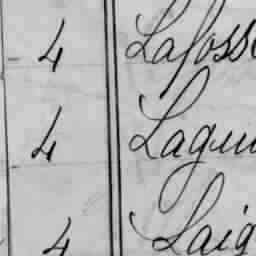 4 Lafosse
4 Lagui
4 Laig